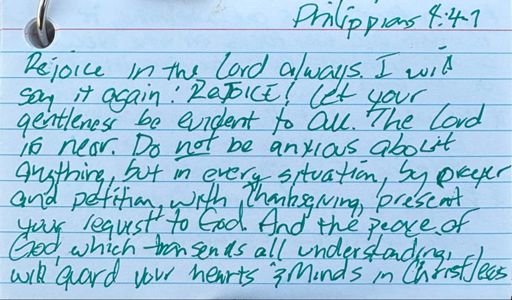 Philippians 4:4-7
Rejoice in the Lord always. I will
say it again: REJOICE! Let your
gentleness be evident to all. The Lord
is near. Do not be anxious about
anything, but in every situation, by prayer
and petition, with Thanksgiving, present
your request to God. And the peace of
God, which transends all understanding,
will guard your hearts & Minds in Christ Jesus